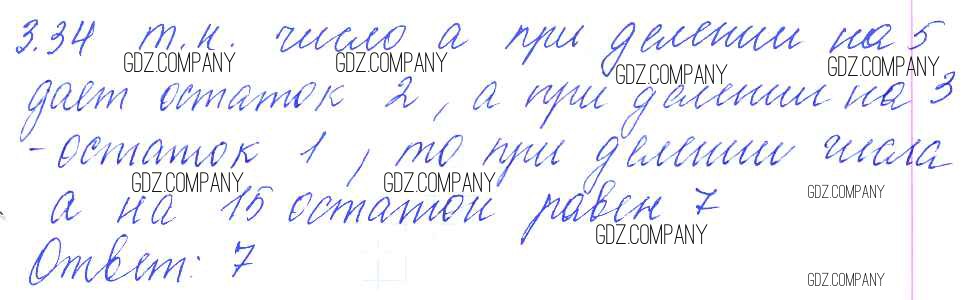 3.34 т.к. число а при делении на 5
GDZ.COMPANY GDZ.COMPANY GDZ.COMPANY GDZ.COMPANY
дает остаток 2, а при делении на 3
- остаток 1, то при делении числа
GDZ.COMPANY GDZ.COMPANY GDZ.COMPANY
а на 15 остаток равен 7
GDZ.COMPANY
Ответ: 7
GDZ.COMPANY